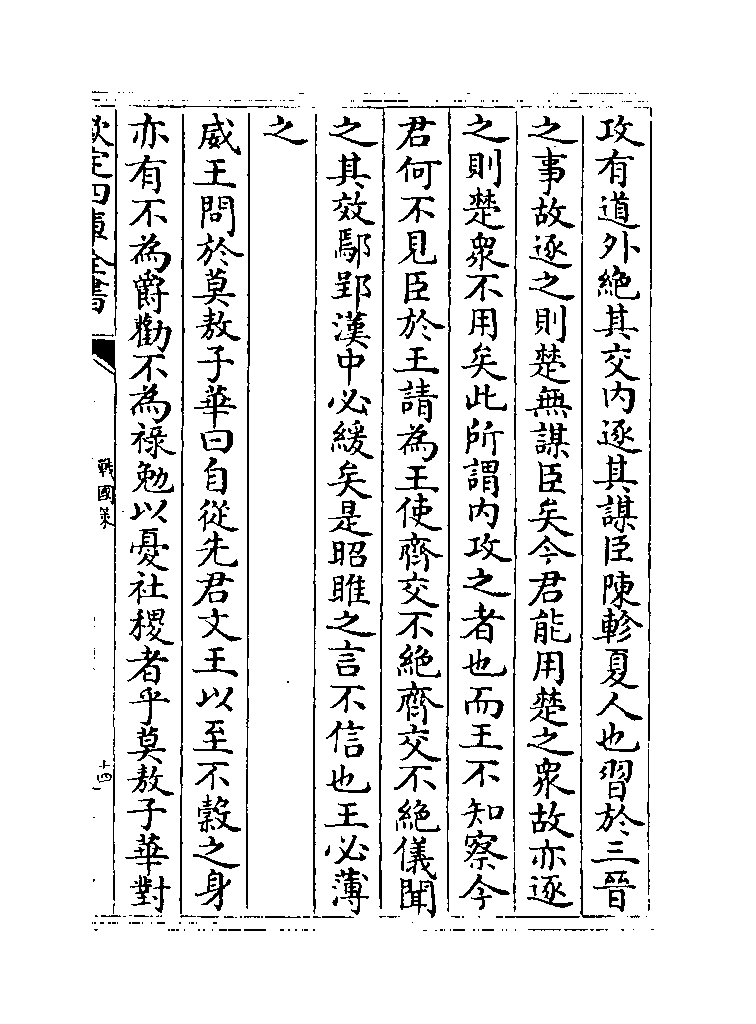 攻有道外絶其交内逐其謀臣陳軫夏人也習於三晉
之事故逐之則楚無謀臣矣今君能用楚之衆故亦逐
之則楚衆不用矣此所謂内攻之者也而王不知察今
君何不見臣於王請為王使齊交不絶齊交不絶儀聞
之其效鄢郢漢中必緩矣是昭睢之言不信也王必薄
之
威王問於莫敖子華曰自從先君文王以至不穀之身
亦有不為爵勸不為祿勉以憂社稷者乎莫敖子華對
欽定四庫全書
戰國策
十四